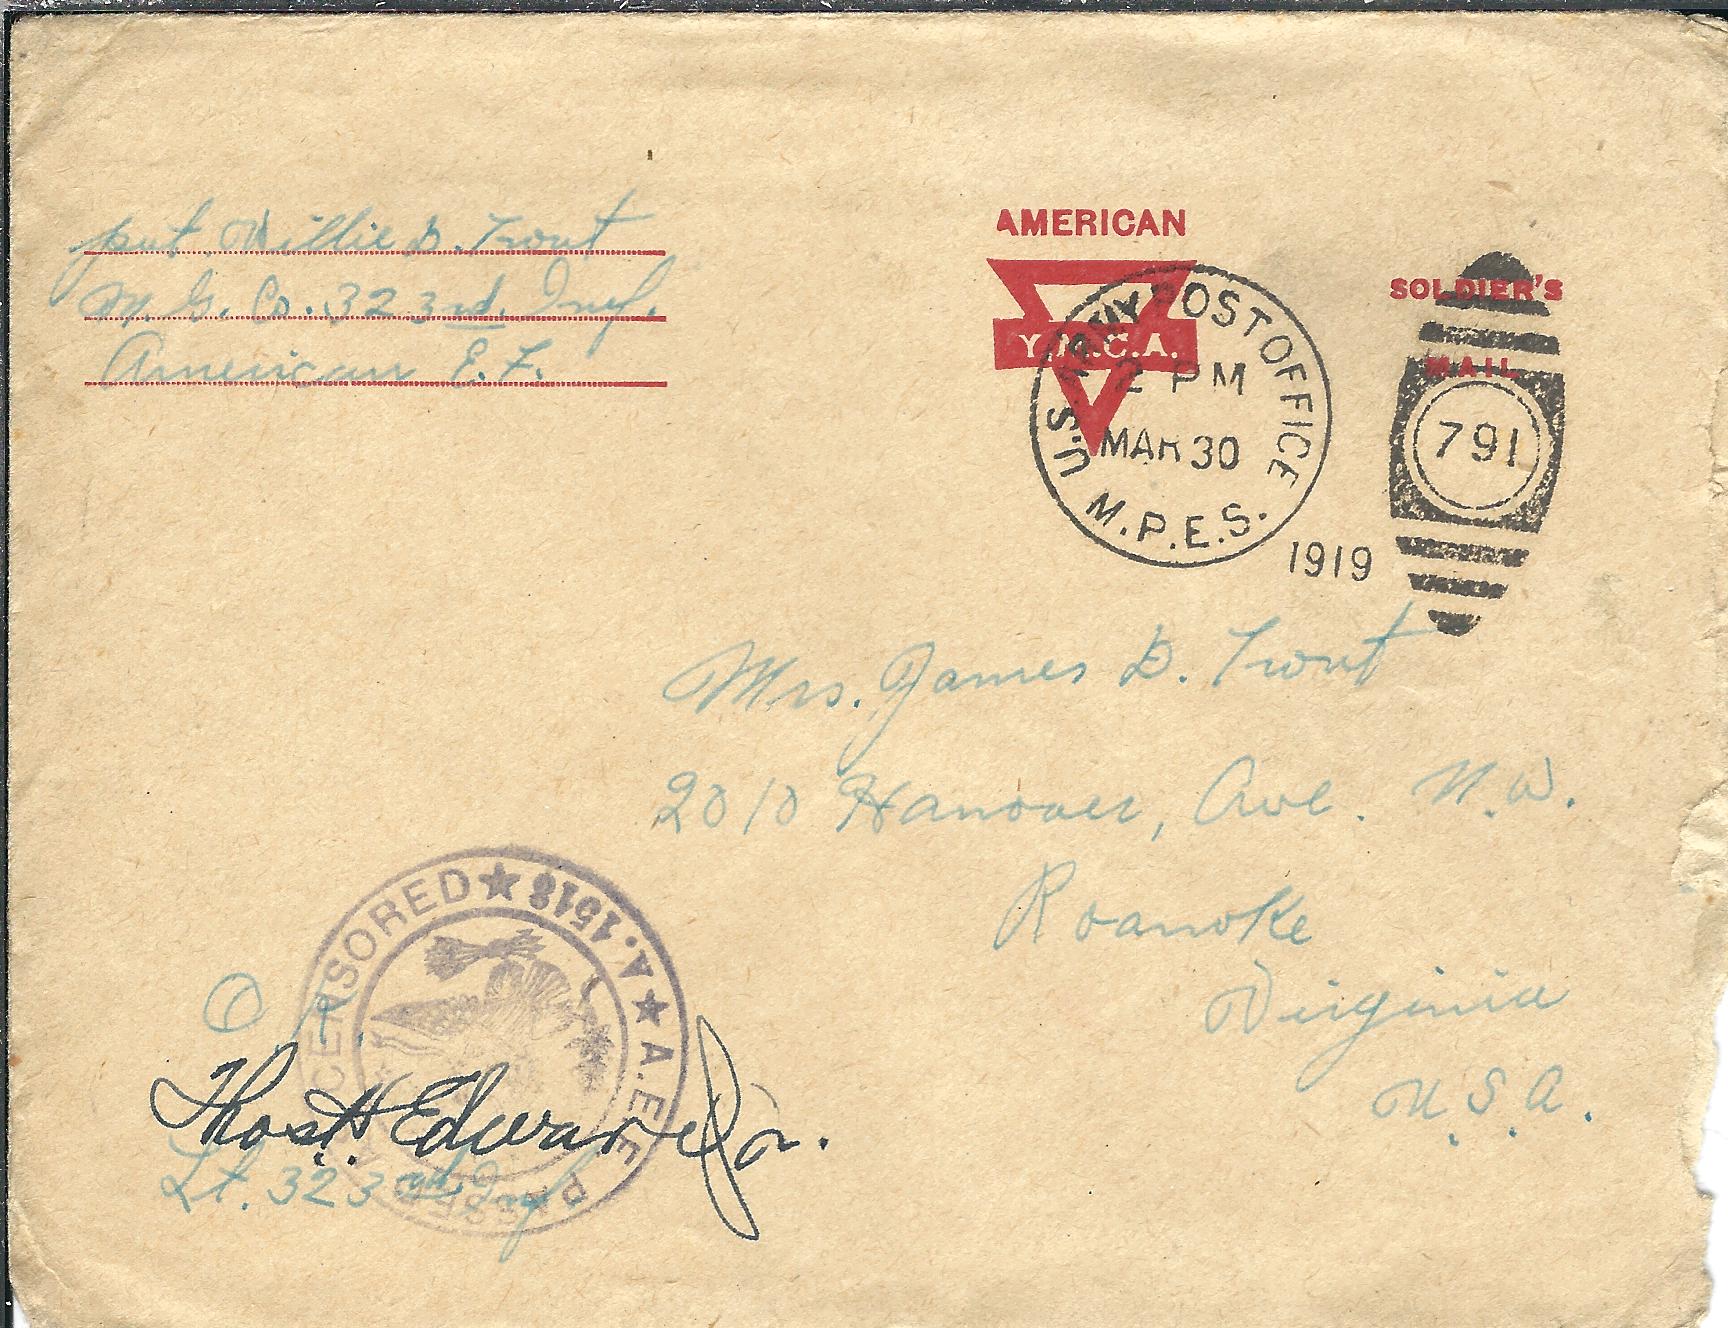 pvt. Willie D. Trout
M. G. Co. 323rd. Inf.
American E. F.
AMERICAN
Y.M.C.A.
U.S. ARMY POST OFFICE
2 PM
MAR 30
M.P.E.S.
1919
SOLDIER'S
MAIL
791
Mrs. James D. Trout
2010 Hanover, Ave. N.W.
Roanoke
Virginia
U.S.A.
A.E.F. PASSED
CENSORED ★ A.1518 ★
O.K.
Thos H Edwards Jr.
Lt. 323rd Inf